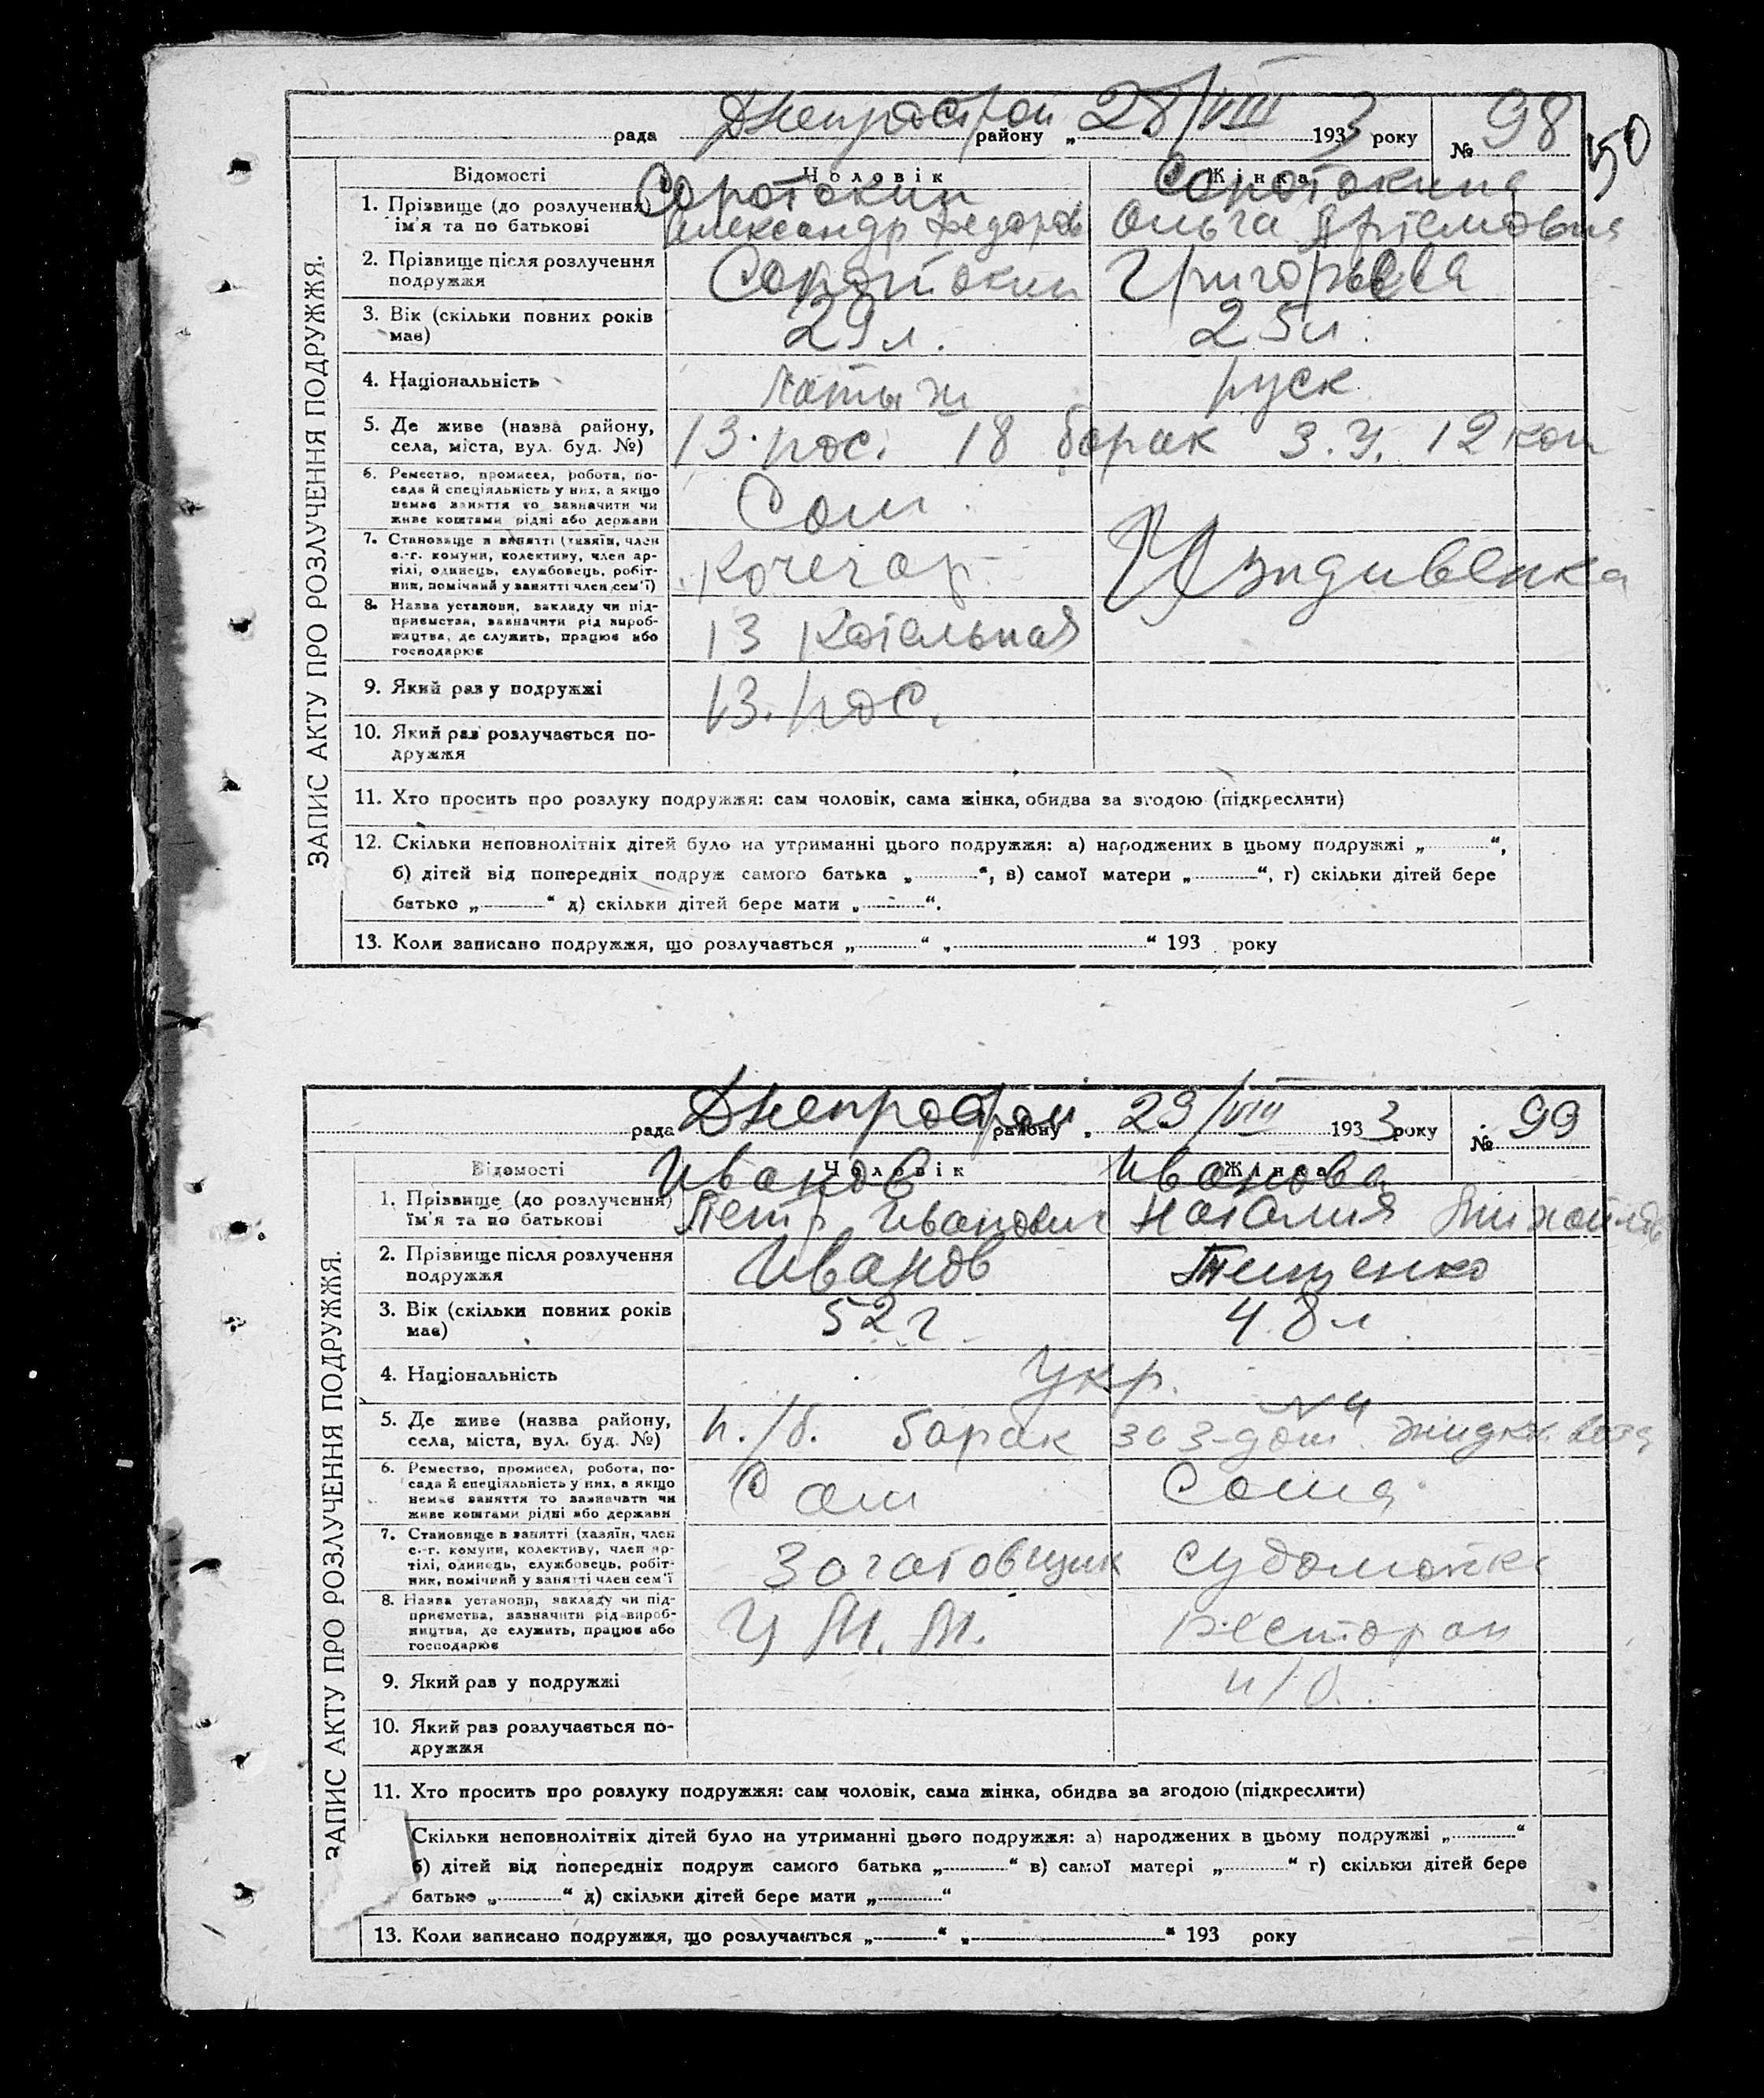 Днепрострой 28/VIII
рада району „ 1933 року № 98
50
Відомості Чоловік Жінка
ЗАПИС АКТУ ПРО РОЗЛУЧЕННЯ ПОДРУЖЖЯ.
1. Прізвище (до розлучення) Соротокин Соротокина
ім'я та по батькові Александр Федоров Ольга Артемовня
2. Прізвище після розлучення Соротокин Григорьева
подружжя
3. Вік (скільки повних років 29 л. 25 л.
має)
4. Національність латыш руск
5. Де живе (назва району, 13 пос. 18 барак З.У. 12 ком
села, міста, вул. буд. №)
6. Ремество, промисел, робота, по- Сам
сада й спеціяльність у них, а якщо
немає заняття то зазначити чи
живе коштами рідні або держави
7. Становище в занятті (хазяїн, член Кочегар Иждивенка
с.-г. комуни, колективу, член ар-
тілі, одинець, службовець, робіт-
ник, помічний у занятті член сем'ї)
8. Назва установи, закладу чи під- 13 Котельная
приємства, зазначити рід вироб-
ництва, де служить, працює або
господарює
9. Який раз у подружжі 13. пос.
10. Який раз розлучається по-
дружжя
11. Хто просить про розлуку подружжя: сам чоловік, сама жінка, обидва за згодою (підкреслити)
12. Скільки неповнолітніх дітей було на утриманні цього подружжя: а) народжених в цьому подружжі „ “,
б) дітей від попередніх подруж самого батька „ “, в) самої матери „ “, г) скільки дітей бере
батько „ “ д) скільки дітей бере мати „ “.
13. Коли записано подружжя, що розлучається „ “ „ “ 193 року
Днепрострой 29/VIII
рада району „ 1933 року № 99
Відомості Чоловік Жінка
ЗАПИС АКТУ ПРО РОЗЛУЧЕННЯ ПОДРУЖЖЯ.
1. Прізвище (до розлучення) Иванов Иванова
ім'я та по батькові Петр Иванович Наталия Михайлов
2. Прізвище після розлучення Иванов Тищенко
подружжя
3. Вік (скільки повних років 52 г. 48 л.
має)
4. Національність Укр.
№ 4
5. Де живе (назва району, п./б. барак
села, міста, вул. буд. №)
6. Ремество, промисел, робота, по- Сам Сама
сада й спеціяльність у них, а якщо
немає заняття то зазначати чи
живе коштами рідні або держави
7. Становище в занятті (хазяїн, член Заготовщик судомойка
с.-г. комуни, колективу, член ар-
тілі, одинець, службовець, робіт-
ник, помічний у занятті член сем'ї
8. Назва установи, закладу чи під- ресторан
приємства, зазначити рід вироб-
ництва, де служить, працює або
господарює
9. Який раз у подружжі п/б.
10. Який раз розлучається по-
дружжя
11. Хто просить про розлуку подружжя: сам чоловік, сама жінка, обидва за згодою (підкреслити)
Скільки неповнолітніх дітей було на утриманні цього подружжя: а) народжених в цьому подружжі „ “
б) дітей від попередніх подруж самого батька „ “ в) самої матері „ “ г) скільки дітей бере
батько „ “ д) скільки дітей бере мати „ “
13. Коли записано подружжя, що розлучається „ “ „ “ 193 року